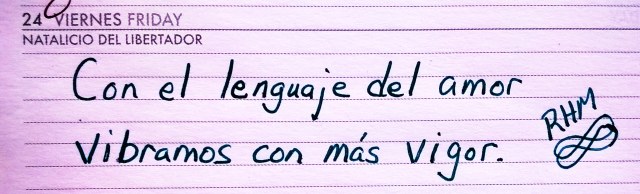 24 VIERNES FRIDAY
NATALICIO DEL LIBERTADOR
Con el lenguaje del amor
vibramos con más vigor.
RHM